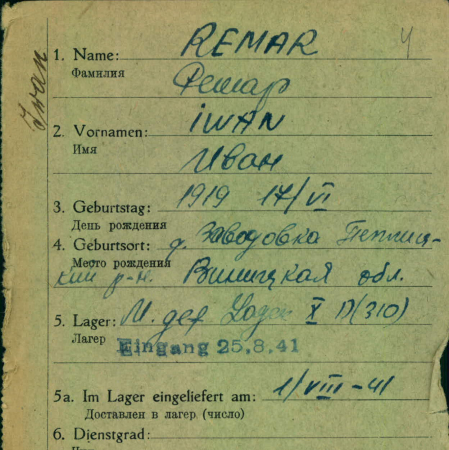 Iwan
REMAR
1. Name:
Фамилия
Ремар
IWAN
2. Vornamen:
Имя
Иван
1919 17/VI
3. Geburtstag:
День рождения
4. Geburtsort: д. Заводовка Теплиц-
Место рождения
кий р-н. Виницкая обл.
5. Lager: X D (310)
Лагер
Eingang 25.8.41
5a. Im Lager eingeliefert am: 1/VIII-41
Доставлен в лагер (число)
6. Dienstgrad: